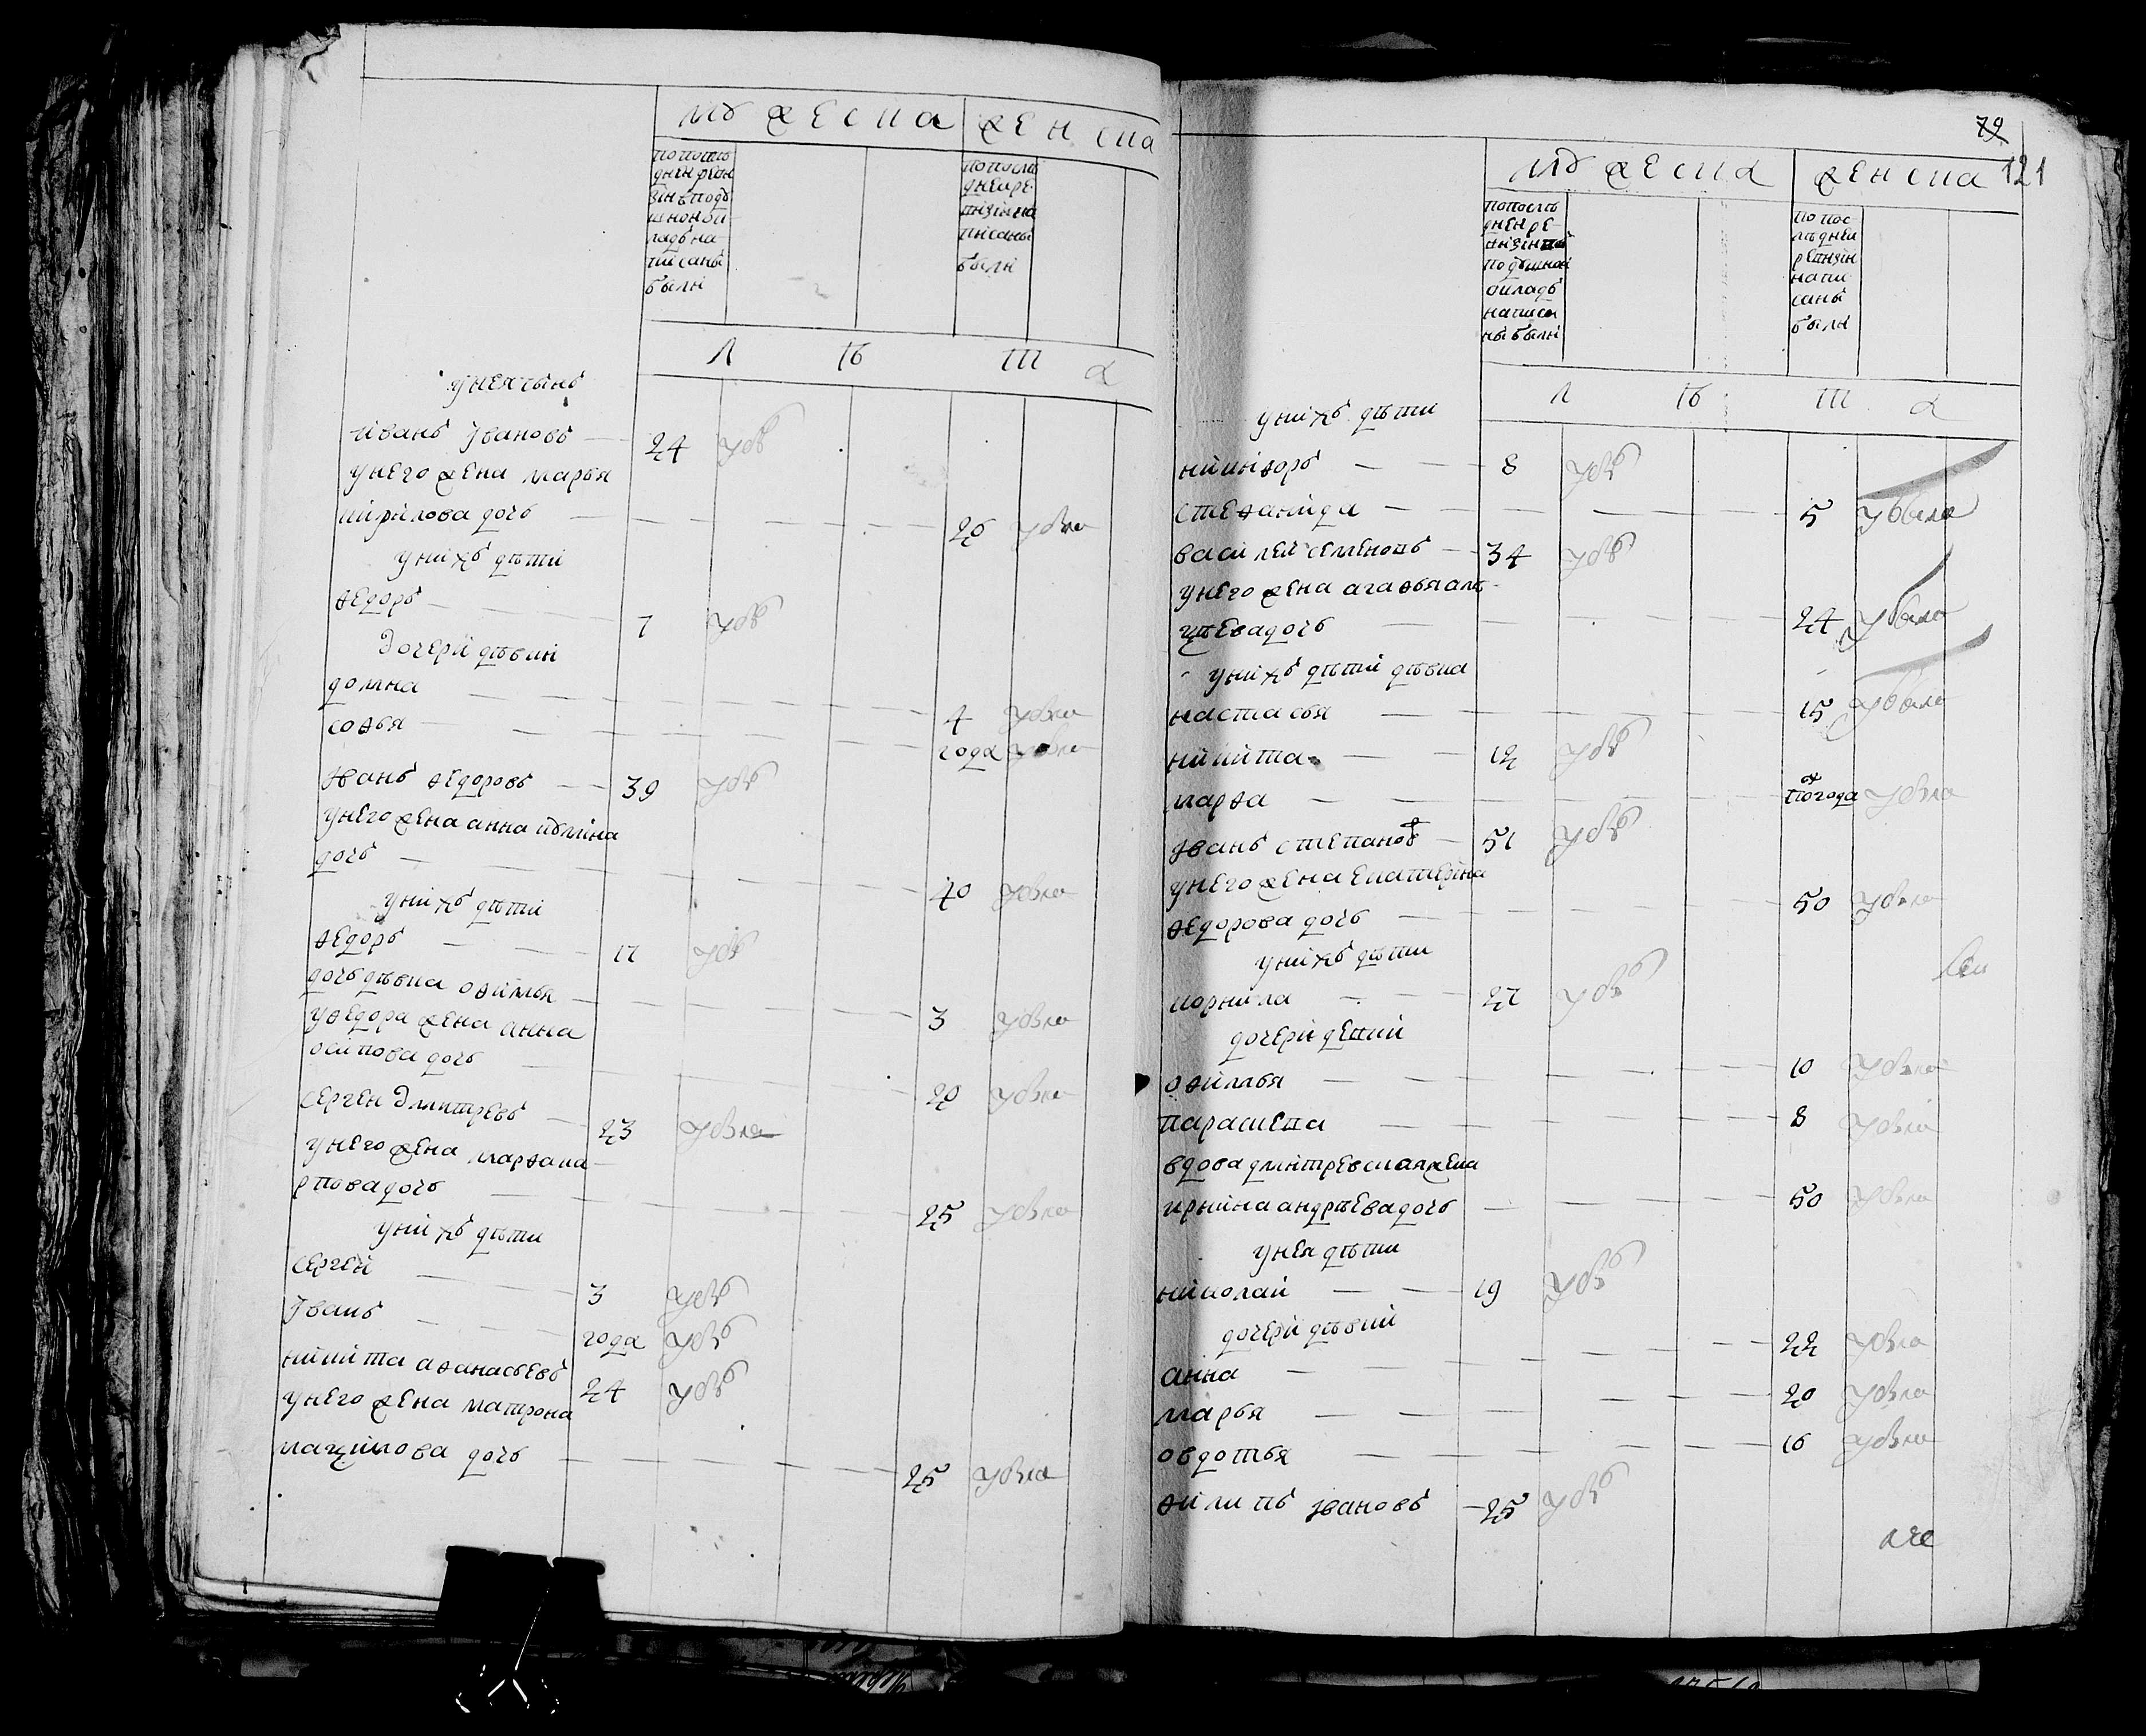 мужеска женска
попослѣ
дней реви
зии вподу
шномок
ладѣ на
писаны
были
попослѣ
дней ре
визии на
писаны
были
л ъ м ж
унея сынъ
иванъ Ивановъ 24 убъ
унего жена марья
кирилова дочь 26 убыла
унихъ дѣти
ѳедоръ 7 убъ
дочери дѣвки
домна 4 убыла
соѳья года убыла
иванъ ѳедоровъ 39 убъ
унего жена анна кузмина
дочь 40 убыла
унихъ дѣти
ѳедоръ 17 убъ
дочь дѣвка оѳимья 3 убыла
уѳедора жена анна
осипова дочь 20 убыла
сергей Дмитревъ 23 убыла
унего жена марѳа ка
рпова дочь 25 убыла
унихъ дѣти
сергей 3 убъ
Иванъ года убъ
никита аѳанасьевъ 24 убъ
унего жена матрона
максимова дочь 25 убыла
79
121
мужеска женска
попослѣ
дней ре
визии в
подушной
окладъ
написа
ны были
по пос
лѣдней
ревизии
напи
саны
были
л ъ м ж
унихъ дѣти
никиѳоръ 8 убъ
стеѳанида 5 убыла
василей семеновъ 34 убъ
унего жена агаѳья але
ѣева дочь 24 убыла
унихъ дѣти дѣвка
настасья 15 убыла
никита 12 убъ
марѳа погода убыла
иванъ степановъ 51 убъ
унего жена екатерина
ѳедорова дочь 50 убыла
унихъ дѣти
корнила 27 убъ
дочери девки
оѳимья 10 убыла
параскева 8 убыла
вдова дмитревская жена
ирина андрѣева дочь 50 убыла
унея дѣти
николай 19 убъ
дочери дѣвки
анна 22 убыла
марья 20 убыла
овдотья 16 убыла
ѳилипъ Ивановъ 25 убъ